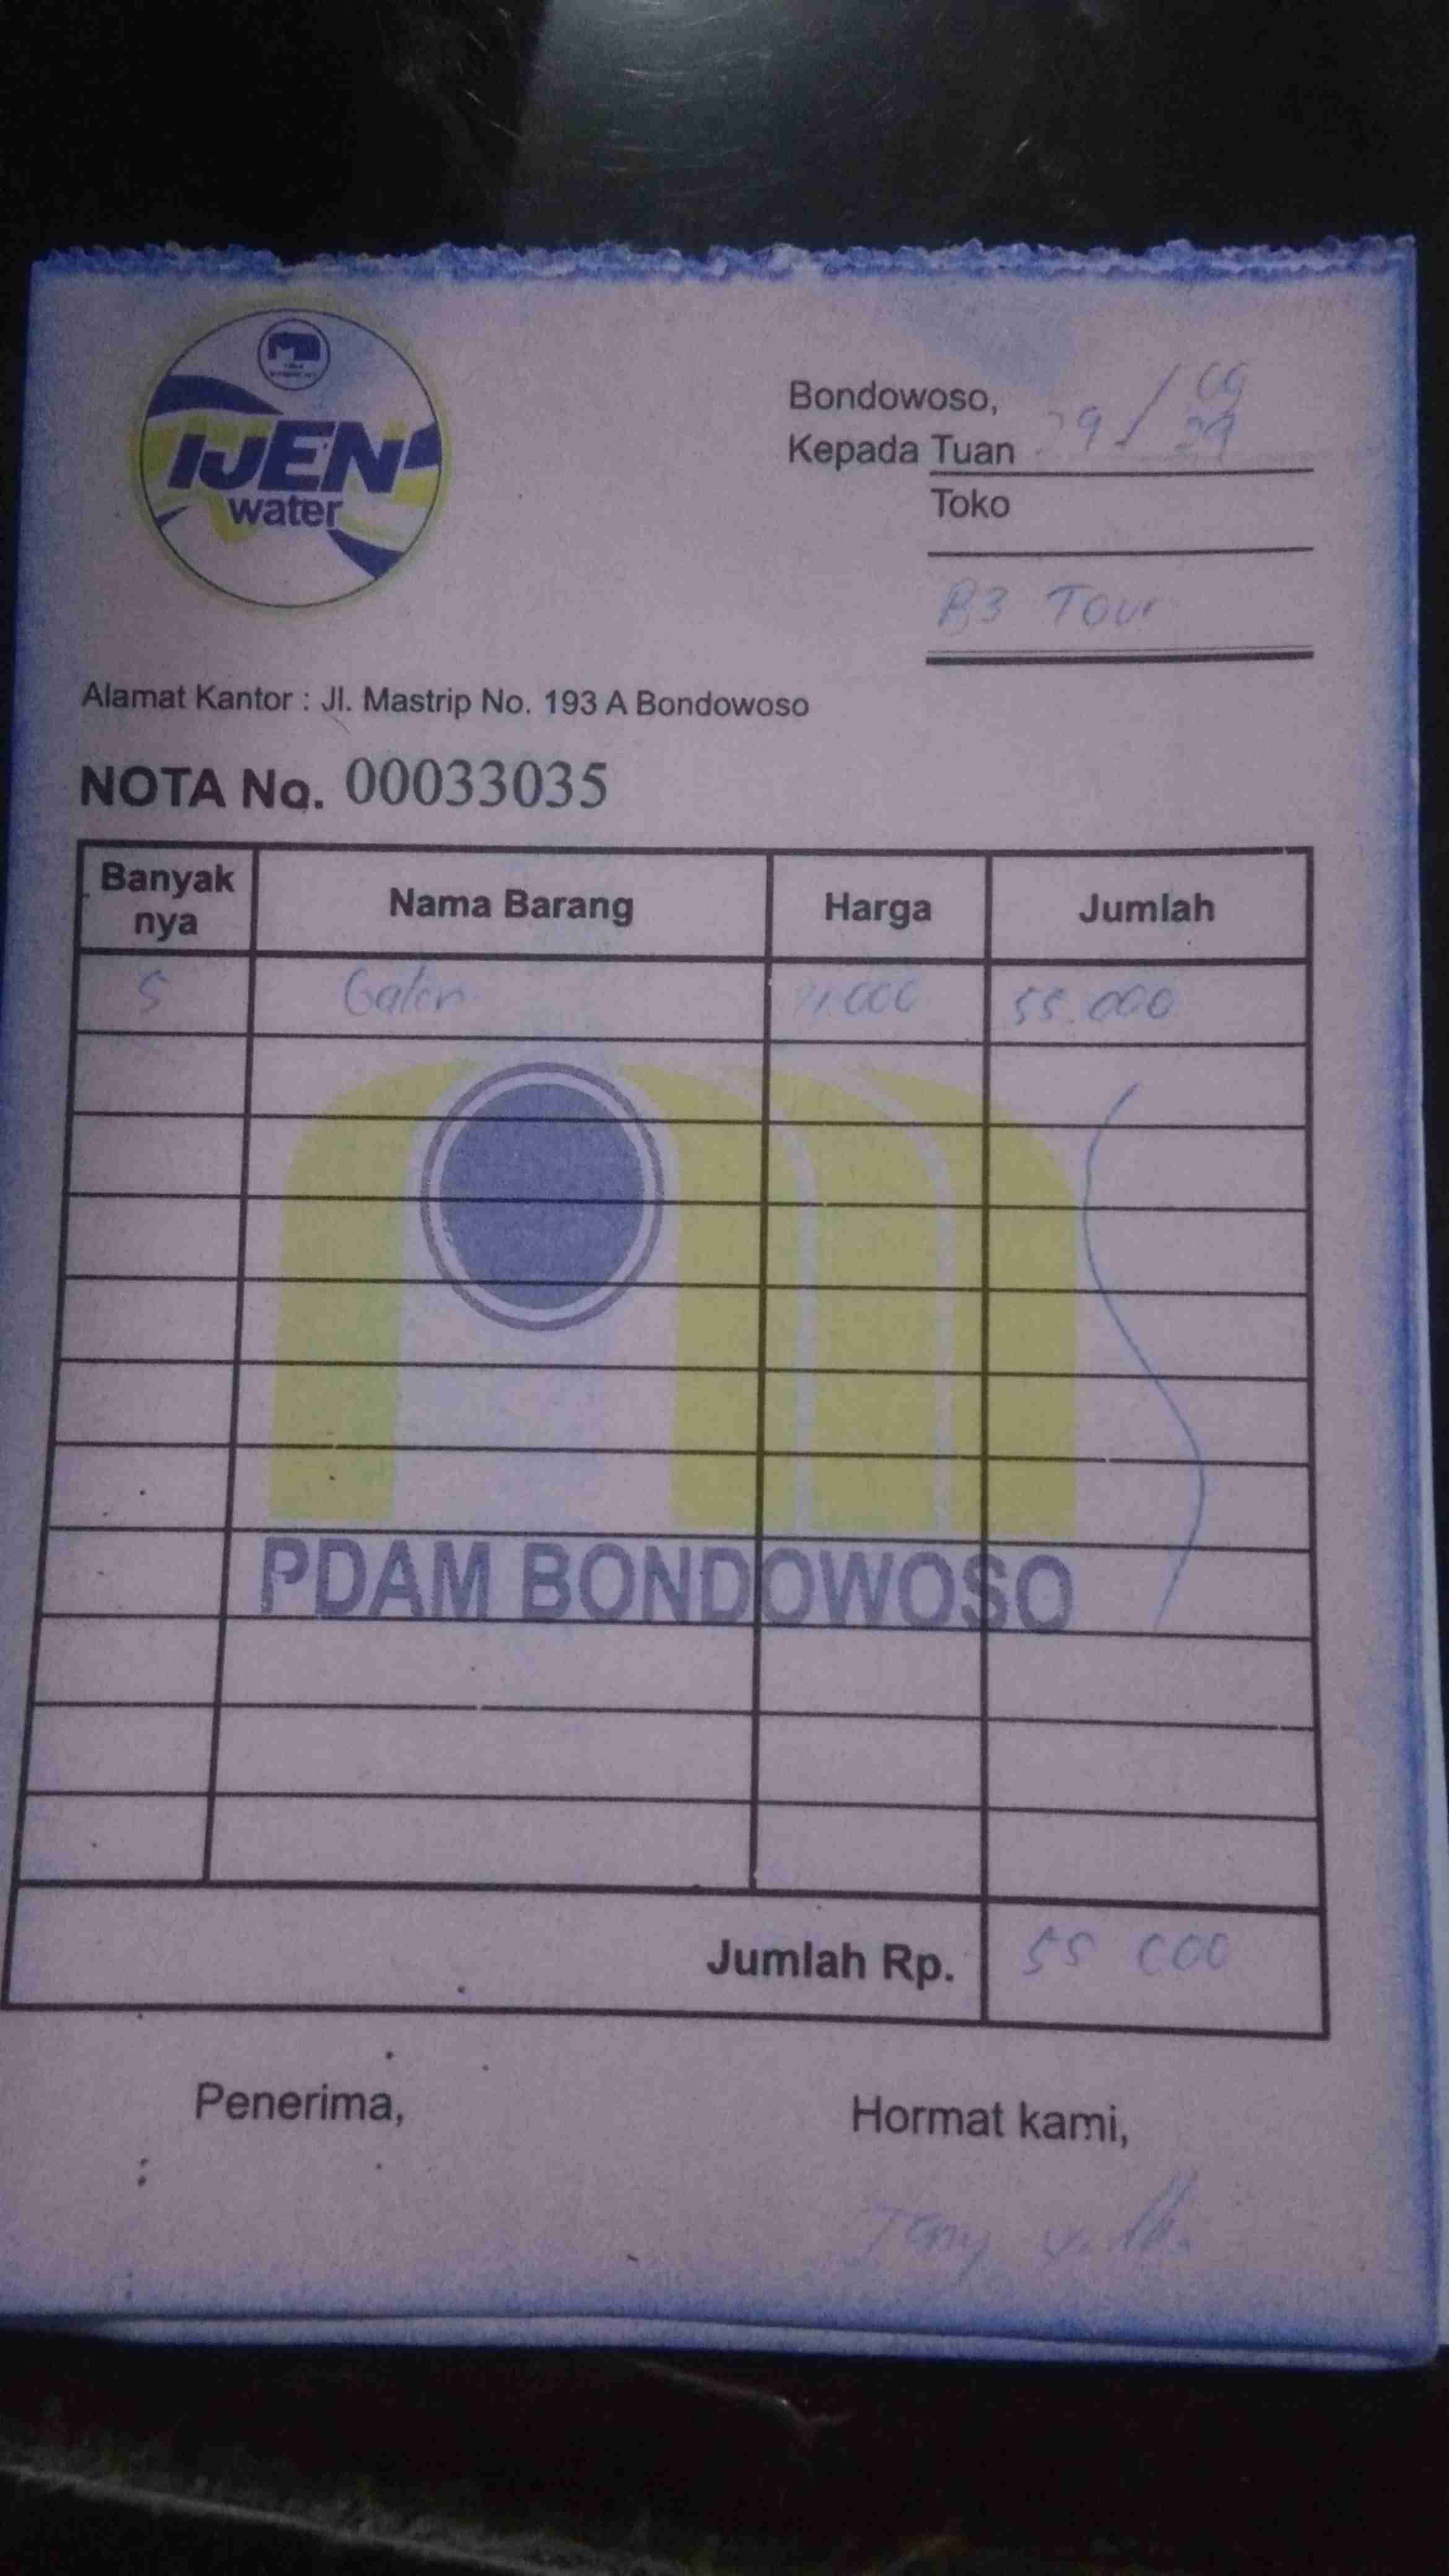 IJEN
water
Bondowoso,
Kepada Tuan
Toko
B3 Tour
Alamat Kantor : Jl. Mastrip No. 193 A Bondowoso
NOTA No. 00033035
Banyak nya Nama Barang Harga Jumlah
5 Galon 11.000 55.000
PDAM BONDOWOSO
Jumlah Rp. 55 000
Penerima, Hormat kami,